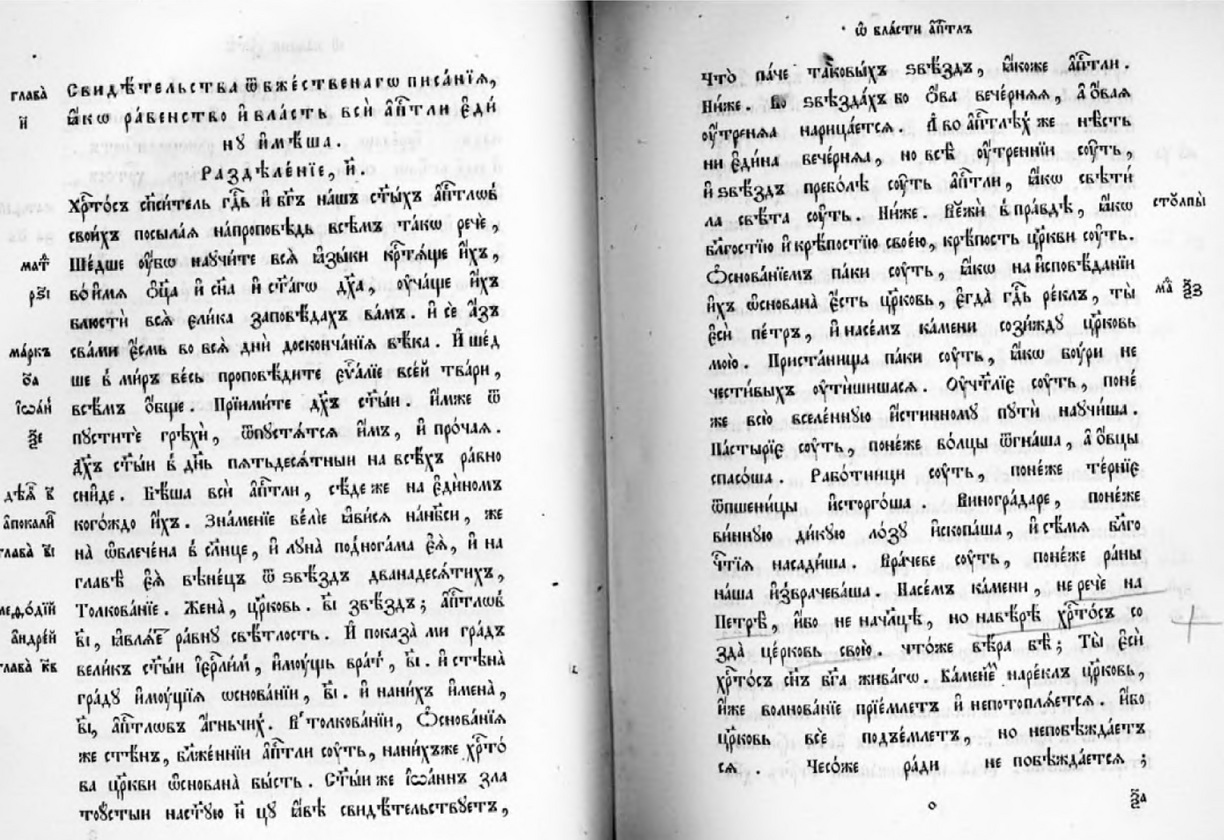 глава̀
и҃
Свидѣ́тельства ѿ бж҃е́ственагѡ писа́нїѧ,
ꙗ҆́кѡ ра́венство и҆ вла́сть всѝ а҆пⷭ҇тли є҆ди
ну и҆мѣ́ша.
Раздѣле́нїе, и҃.
Хрⷭ҇то́съ сп҃си́тель гдⷭ҇ь и҆ бг҃ъ на́шъ ст҃ы́хъ а҆пⷭ҇тлѡвъ
свои́хъ посыла́ѧ на́проповѣдь всѣ́мъ та́кѡ речѐ,
маⷴ҇
Ше́дше ᲂу҆́бѡ наꙋчи́те всѧ̀ ꙗ҆зы́ки крⷭ҇тѧ́ще и҆́хъ,
во и҆́мѧ ѻ҆ц҃а̀ и҆ сн҃а и҆ ст҃а́гѡ дх҃а, ᲂу҆ча́ще и҆̀хъ
блюстѝ всѧ̀ є҆ли́ка заповѣ́дахъ ва́мъ. и҆ сѐ а҆́зъ
ма́ркъ
сва́ми є҆́смь во всѧ̀ днѝ доскѡнча́нїѧ вѣ́ка. И҆ ше́д
о҃а
ше в̾ ми́ръ ве́сь проповѣ́дите є҆ѵⷢ҇лїе все́й тва́ри,
і҆ѡа́н
всѣ́мъ ѻ҆́бще. Прїими́те дх҃ъ ст҃ы́и. и҆́мже ѿ
ѯ҃е
пусти́те грѣхѝ, ѿпꙋстѧ́тсѧ и҆́мъ, и҆ про́чаѧ.
Дх҃ъ ст҃ы́и в̾ дн҃ь пѧтьдесѧ́тныи на всѣ́хъ ра́вно
дѣѧ҃
сни́де. Бѣ́ша всѝ а҆пⷭ҇тли, сѣ́де же на є҆ди́номъ
а҆покали́п
кого́ждо и҆́хъ. Зна́менїе ве́лїе ꙗ҆ви́сѧ нанб҃си, же
глава̀ в҃і
на̀ ѡ҆блече́на в̾ сл҃нце, и҆ лꙋна̀ под̾нога́ма є҆ѧ̀, и҆ на
главѣ̀ є҆ѧ̀ вѣне́цъ ѿ ѕвѣ́здъ дванадесѧ́тихъ,
меѳо́дїй
Толкова́нїе. Жена̀, цр҃ковь. в҃і звѣ́здъ; а҆пⷭ҇тлѡвъ
а҆ндре́й
в҃і, ꙗ҆влѧ́е ра́внꙋ свѣ́тлость. И҆ показа̀ ми гра́дъ
глава̀ к҃в
вели́къ ст҃ы́и і҆ер҃ли́м, и҆мꙋ́щь вра́тъ, в҃і. и҆ стѣна̀
гра́дꙋ и҆мꙋ́щїѧ ѡ҆снова́нїи, в҃і. и҆ нани́хъ и҆мена̀,
в҃і, а҆пⷭ҇тлѡвъ а҆́гньчихъ. В̾ толкова́нїи, Ѻ҆снова́нїѧ
же стѣ́нъ, бл҃же́ннїи а҆пⷭ҇тли сꙋ́ть, нани́хъже хрⷭ҇то́
ва цр҃кви ѡ҆снована̀ бы́сть. Ст҃ы́и же і҆ѡа́ннъ зла
тоꙋ́стыи ꙗ҆́вѣ свидѣ́тельствꙋетъ,
ѡ҆ вла́сти а҆пⷭ҇тлъ
что̀ па́че таковы́хъ ѕвѣ́здъ, ꙗ҆́коже а҆пⷭ҇тли.
Ни́же. Во ѕвѣзда́хъ бо ѻ҆́ва вече́рнѧѧ, а҆ ѻ҆́ваѧ
ᲂу҆́тренѧѧ нарица́етсѧ. А҆ во а҆пⷭ҇тлѣхъ же нѣ́сть
ни є҆ди́на вече́рнѧѧ, но всѣ̀ ᲂу҆́треннїи сꙋ́ть,
и҆ ѕвѣ́здъ пребо́лѣ сꙋ́ть а҆пⷭ҇тли, ꙗ҆́кѡ свѣти́
столпы̀
ла свѣ́та сꙋ́ть. Ни́же. в̾ пра́вдѣ, ꙗ҆́кѡ
бл҃гостїю и҆ крѣ́постїю свое́ю, крѣ́пость цр҃кви сꙋ́ть.
Ѻ҆снова́нїемъ па́ки сꙋ́ть, ꙗ҆́кѡ на и҆сповѣ́данїи
маⷴ҇ ѯ҃з
и҆́хъ ѡ҆снована̀ є҆́сть цр҃ковь, є҆гда̀ гдⷭ҇ь ре́клъ, ты̀
є҆сѝ пе́тръ, и҆ насе́мъ ка́мени сози́ждꙋ цр҃ковь
мою̀. Приста́нища па́ки сꙋ́ть, ꙗ҆́кѡ бꙋ́ри не
чести́выхъ ᲂу҆ти́шишасѧ. Оу҆чт҃лїе сꙋ́ть, поне́
же всю̀ вселе́ннꙋю и҆́стинномꙋ пꙋтѝ наꙋчи́ша.
Па́стырїе сꙋ́ть, поне́же во́лцы ѿгна́ша, а҆ ѻ҆́вцы
спасо́ша. Рабо́тници сꙋ́ть, поне́же те́рнїе
ѿпшени́цы и҆сторго́ша. Виногра́даре, поне́же
ви́ннꙋю ди́кꙋю ло́зꙋ и҆скопа́ша, и҆ сѣ́мѧ бл҃го
чⷭ҇тїѧ насади́ша. Вра́чеве сꙋ́ть, поне́же ра́ны
на́ша и҆зврачева́ша. Насе́мъ ка́мени, не речѐ на
Петрѣ̀, и҆́бо не на чл҃цѣ, но навѣ́рѣ хрⷭ҇то́съ со
зда̀ це́рковь свою̀. что́же вѣ́ра бѣ̀; Ты̀ є҆сѝ
хрⷭ҇то́съ сн҃ъ бг҃а жива́гѡ. Ка́менїе наре́клъ цр҃ковь,
и҆́же волнова́нїе прїе́млетъ и҆ непотоплѧ́етсѧ. и҆́бо
цр҃ковь всѐ под̾е́млетъ, но непобѣжда́етъ
сѧ. Чесо́же ра́ди не побѣжда́етсѧ;
ѯ҃а